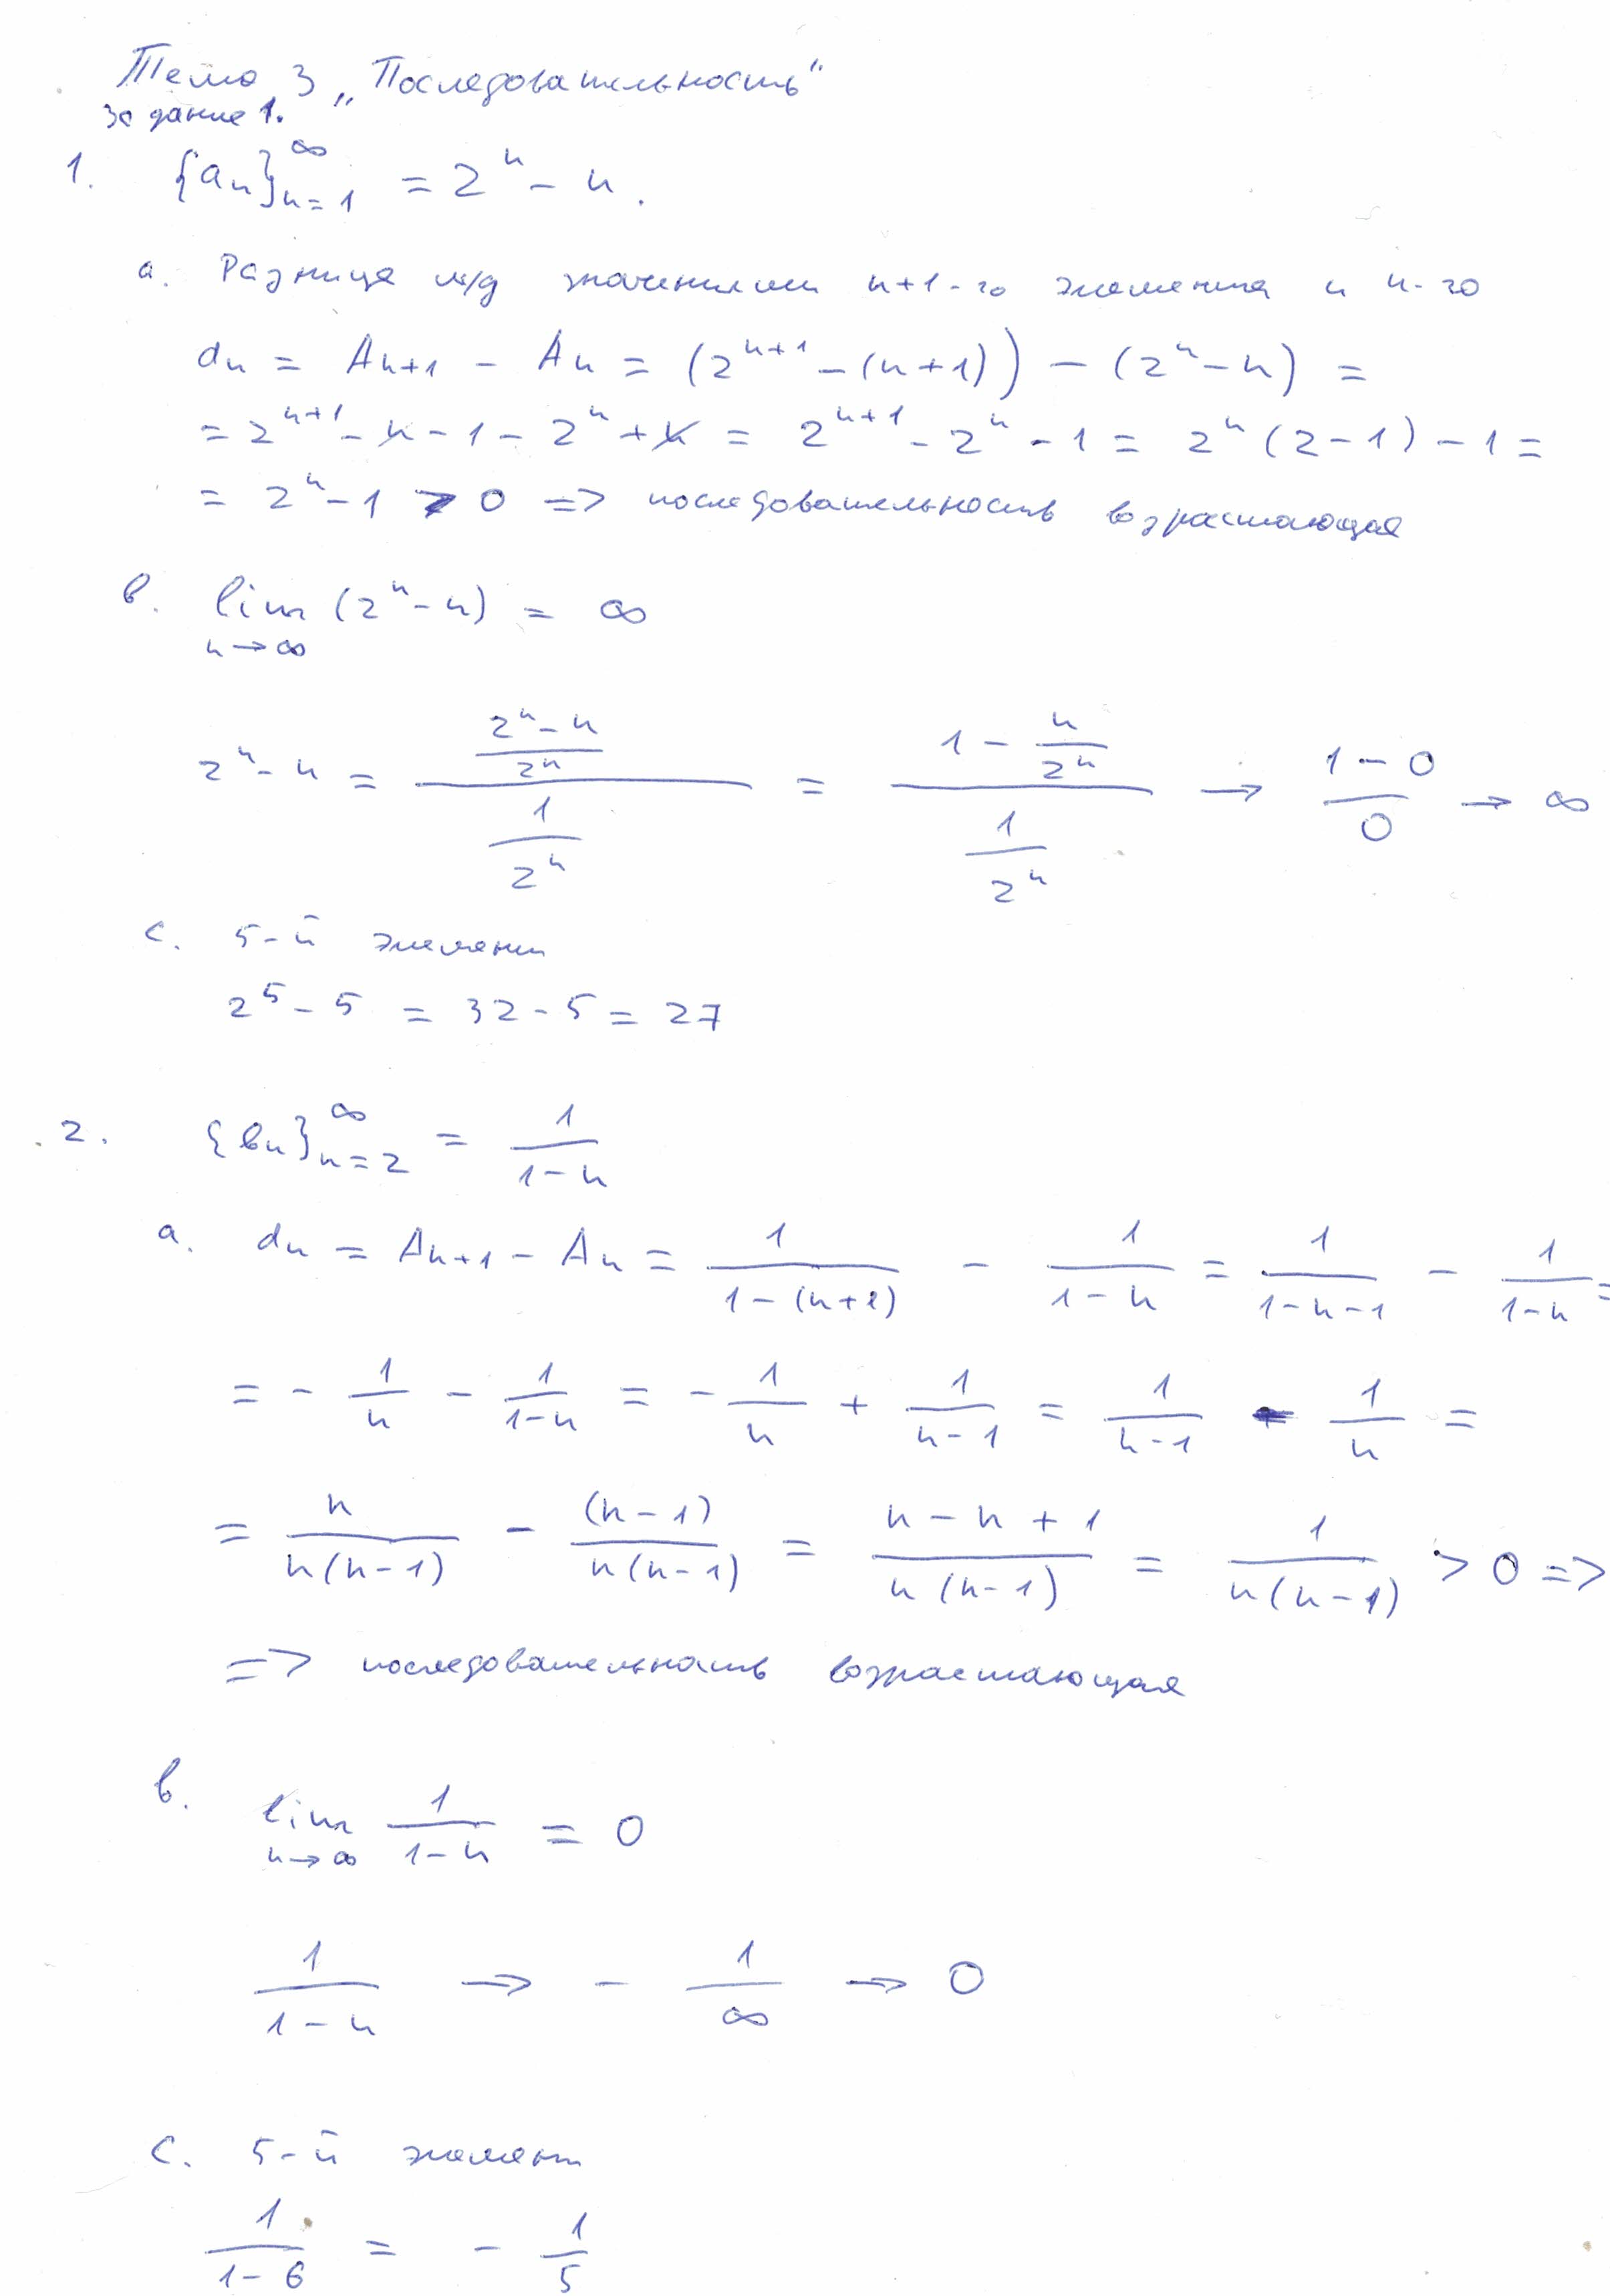 Тема 3 „Последовательность“
задание 1.
1. {aₙ}ₙ₌₁^∞ = 2ⁿ - n.
a. Разница м/д значениями n+1-го элемента и n-го
dₙ = Aₙ₊₁ - Aₙ = (2ⁿ⁺¹ - (n+1)) - (2ⁿ - n) =
= 2ⁿ⁺¹ - n - 1 - 2ⁿ + n = 2ⁿ⁺¹ - 2ⁿ - 1 = 2ⁿ(2-1) - 1 =
= 2ⁿ - 1 > 0 => последовательность возрастающая
b. lim (2ⁿ - n) = ∞
n→∞
2ⁿ - n = ((2ⁿ - n)/2ⁿ)/(1/2ⁿ) = (1 - n/2ⁿ)/(1/2ⁿ) → (1-0)/0 → ∞
c. 5-й элемент
2⁵ - 5 = 32 - 5 = 27
2. {bₙ}ₙ₌₂^∞ = 1/(1-n)
a. dₙ = Aₙ₊₁ - Aₙ = 1/(1-(n+1)) - 1/(1-n) = 1/(1-n-1) - 1/(1-n) =
= - 1/n - 1/(1-n) = - 1/n + 1/(n-1) = 1/(n-1) - 1/n =
= n/(n(n-1)) - (n-1)/(n(n-1)) = (n-n+1)/(n(n-1)) = 1/(n(n-1)) > 0 =>
=> последовательность возрастающая
b. lim 1/(1-n) = 0
n→∞
1/(1-n) → - 1/∞ → 0
c. 5-й элемент
1/(1-6) = - 1/5